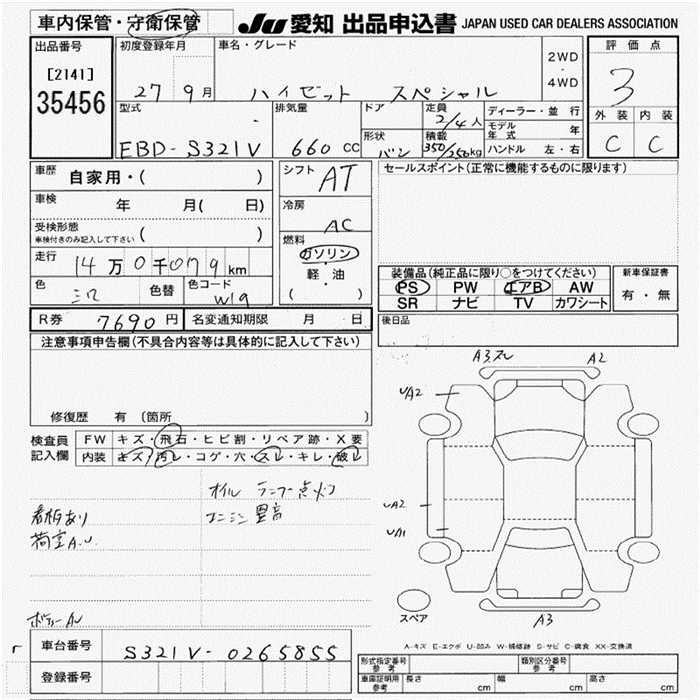 車内保管・守衛保管 JU 愛知 出品申込書 JAPAN USED CAR DEALERS ASSOCIATION
出品番号 初度登録年月 車名・グレード 評価点
[2141] 27 9月 ハイゼット スペシャル 2WD・4WD 3
35456 型式 排気量 ドア 定員 2/4人 ディーラー・並行 外装 内装
EBD-S321V 660 CC 形状 バン 積載 350/250kg モデル年式 年 C C
ハンドル 左・右
車歴 自家用・( ) シフト AT セールスポイント(正常に機能するものに限ります)
車検 年 月( 日) 冷房 AC
受検形態 車検付きのみ記入して下さい ( )
燃料 ガソリン 軽・油 ( )
走行 14万0千079km
装備品(純正品に限り○をつけてください) 新車保証書
色 シロ 色替 色コード W19
PS PW エアB AW 有・無
SR ナビ TV カワシート
R券 7690円 名変通知期限 月 日 後日品
注意事項申告欄(不具合内容等は具体的に記入して下さい)
A3 スレ A2
UA2
修復歴 有 (箇所 )
検査員記入欄 FW キズ・飛石・ヒビ割・リペア跡・X要
内装 キズ・汚レ・コゲ・穴・スレ・キレ・破レ
オイル ランプー点灯
看板あり
荷室A.U.
UA2
UA1
スペア
A3
A-キズ E-エクボ U-凹み W-補修跡 S-サビ C-腐食 XX-交換済
車台番号 S321V-0265855
登録番号
形式指定番号 参考 類別区分番号 参考
車庫証明用 参考 長さ cm 幅 cm 高さ cm